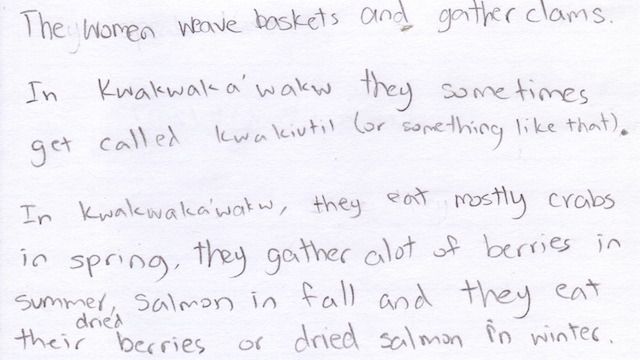 The Women weave baskets and gather clams.
In Kwakwaka'wakw they sometimes
get called kwakiutil (or something like that).
In kwakwaka'wakw, they eat mostly crabs
in spring, they gather alot of berries in
summer, salmon in fall and they eat
dried
their berries or dried salmon in winter.